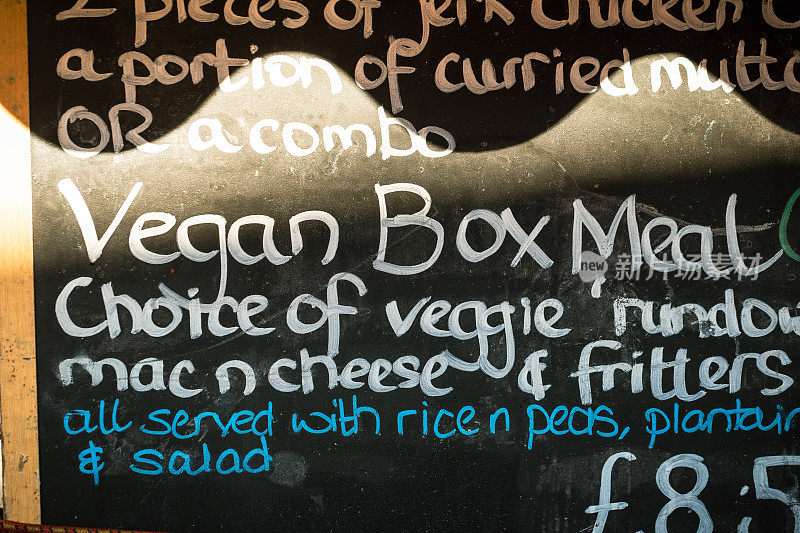 2 pieces of jerk chicken
a portion of curried mutto
OR a combo
Vegan Box Meal
Choice of veggie 'rundow
mac n cheese & fritters
all served with rice n peas, plantain
& salad
£8.5
new 新图网